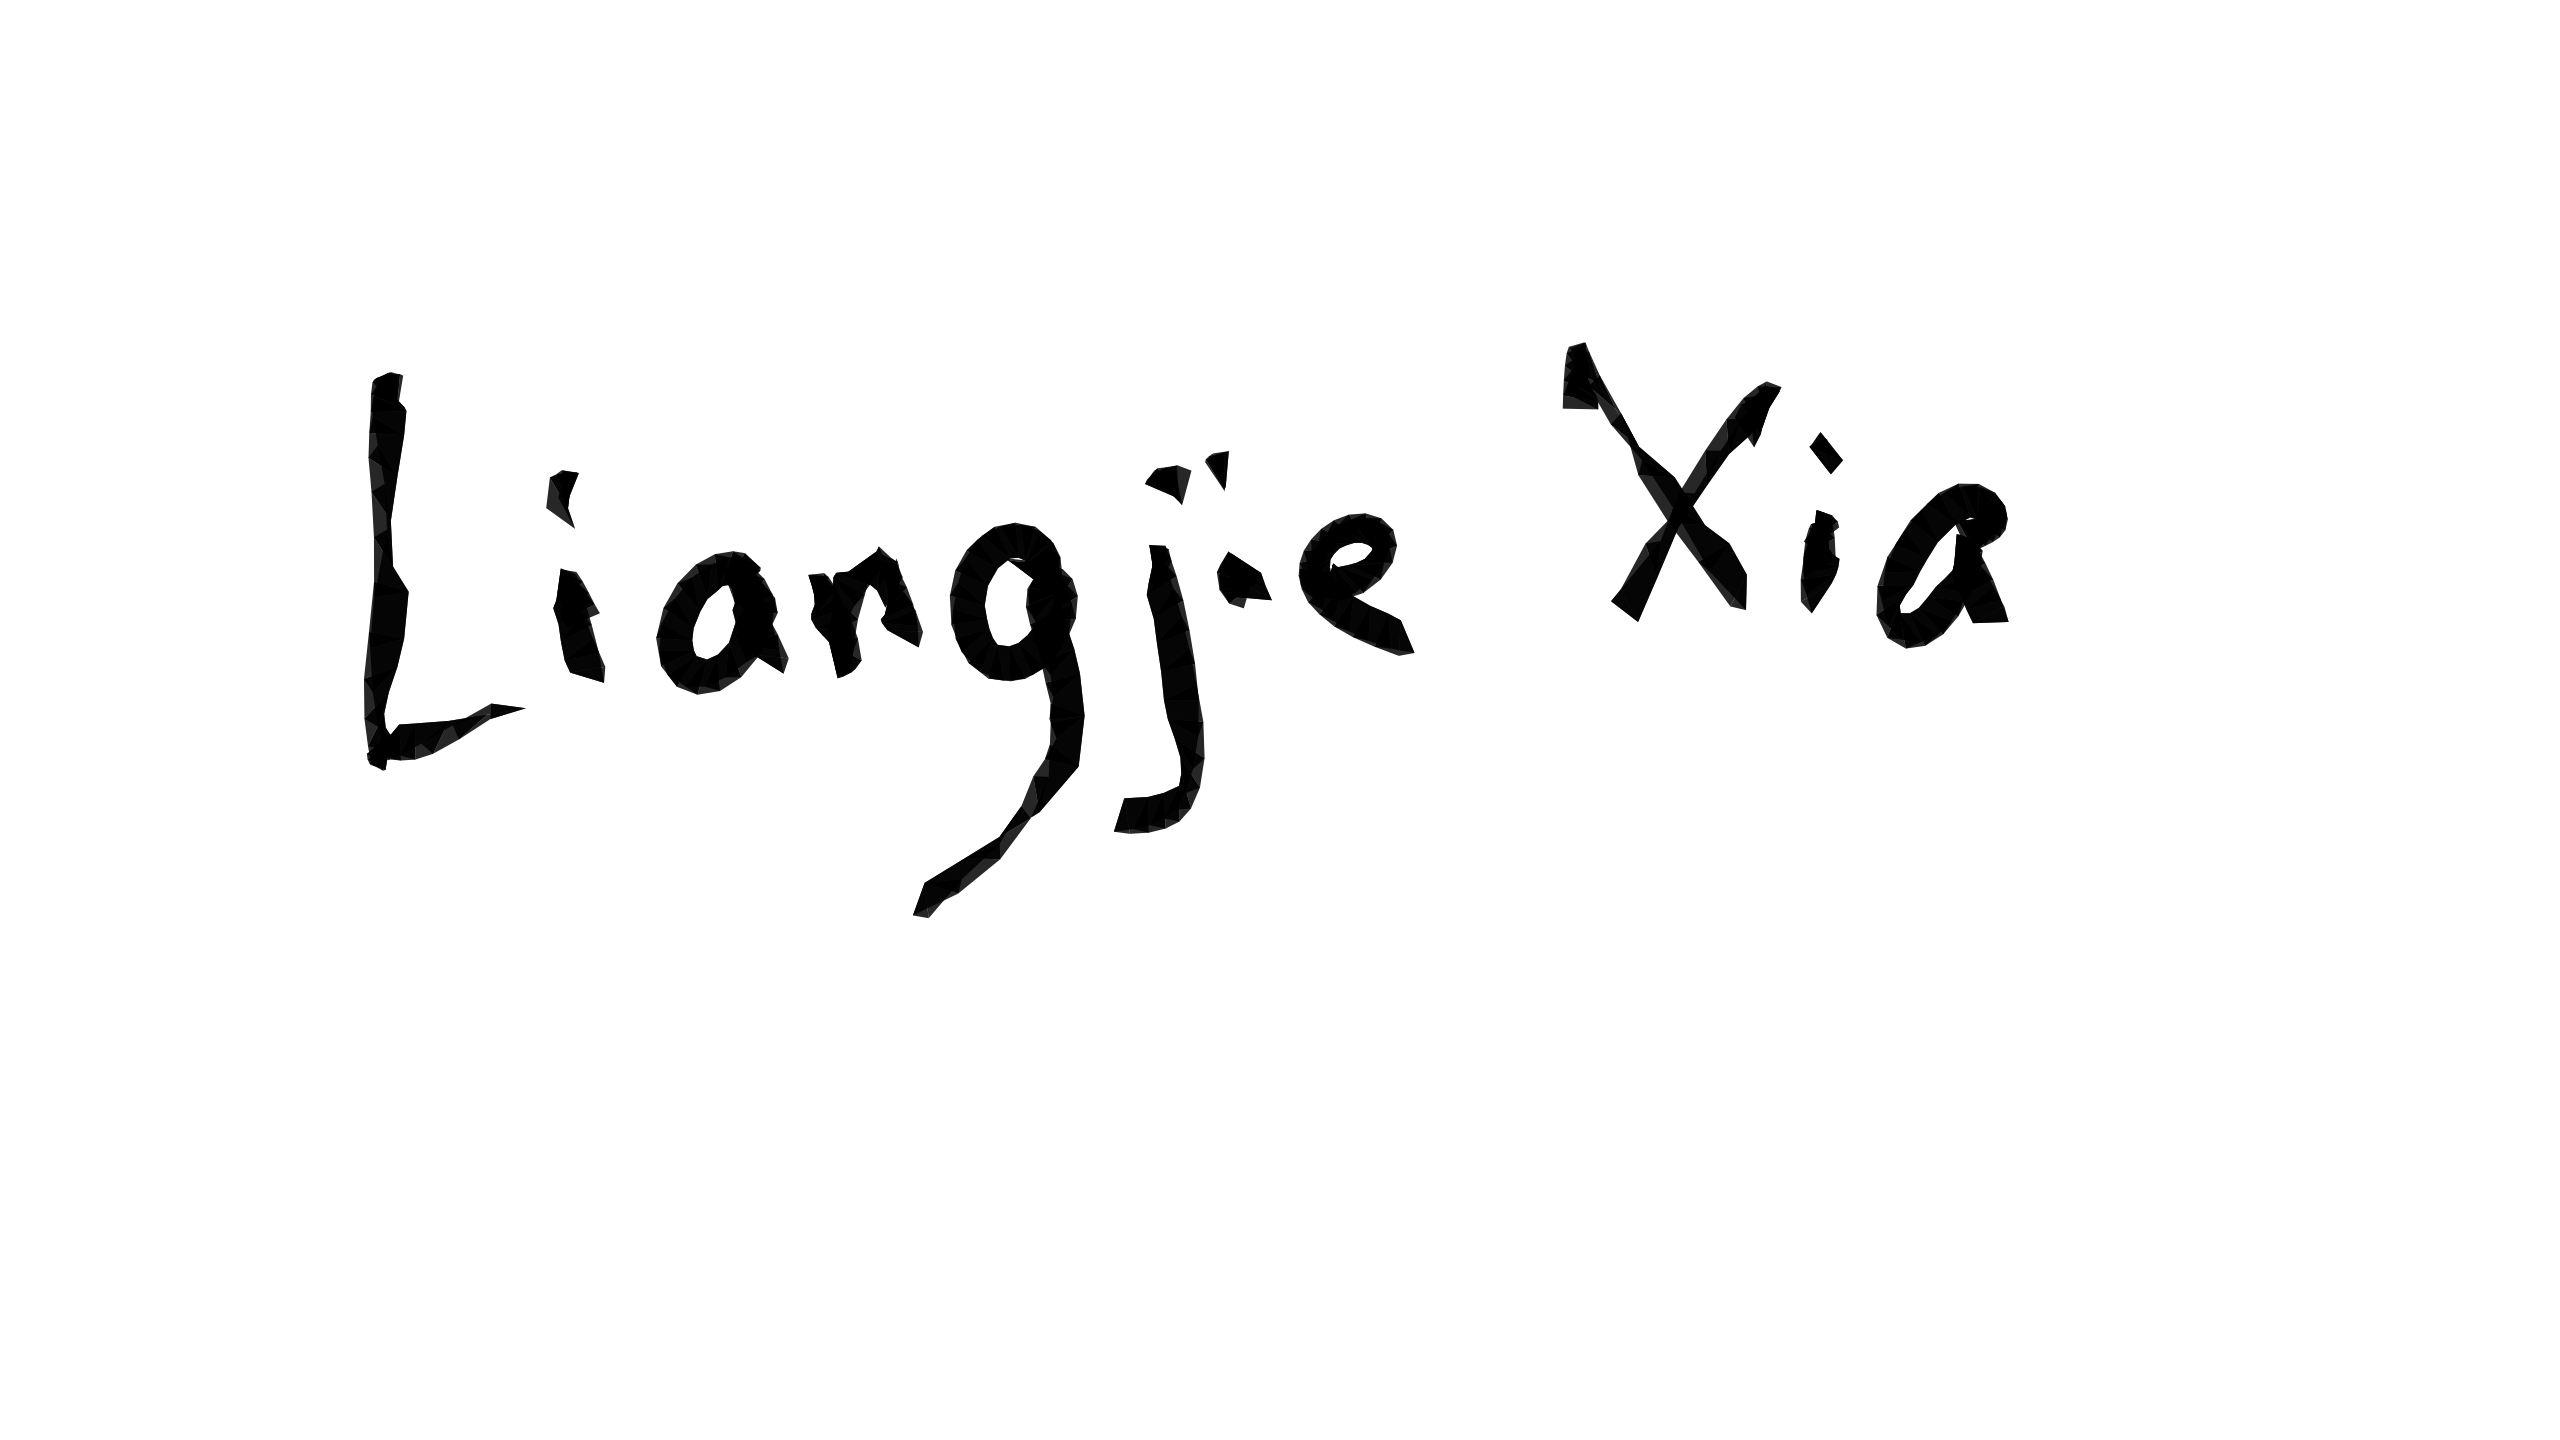 Liangjie Xia